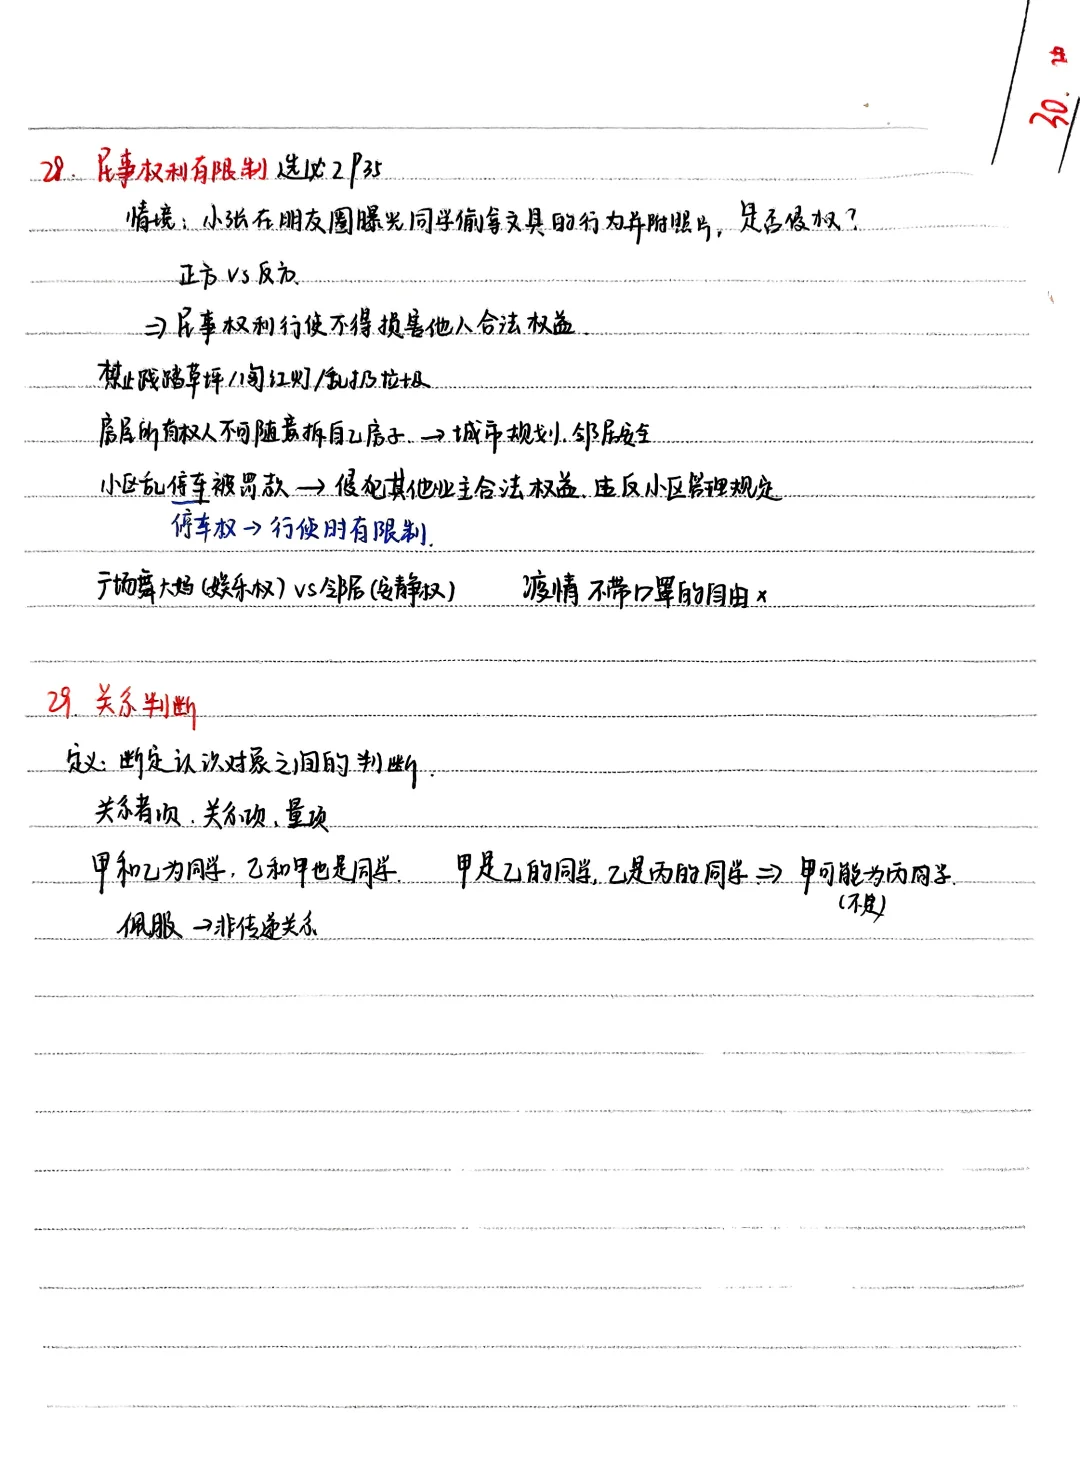 30.
28. 民事权利有限制 选必2 P35
情境：小张在朋友圈曝光同学偷拿文具的行为并附照片，是否侵权？
正方 VS 反方.
⇒ 民事权利行使不得损害他人合法权益.
禁止践踏草坪/闯红灯/乱扔垃圾
房屋所有权人不可随意拆自己房子. → 城市规划.邻居安全
小区乱停车被罚款 → 侵犯其他业主合法权益、违反小区管理规定
停车权 → 行使时有限制.
广场舞大妈(娱乐权) VS 邻居(安静权) 疫情 不带口罩的自由 ×
29. 关系判断
定义：断定认识对象之间的判断.
关系者项、关系项、量项
甲和乙为同学，乙和甲也是同学. 甲是乙的同学，乙是丙的同学 ⇒ 甲可能为丙同学.
(不是)
佩服 → 非传递关系